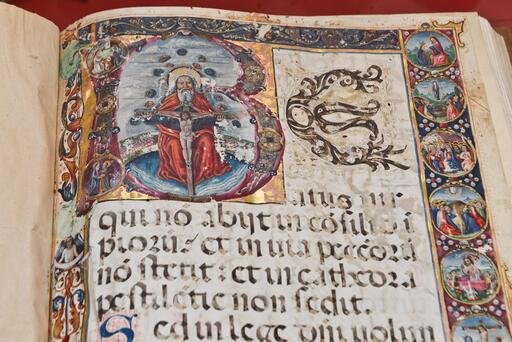 BEatus uir
qui nō abijt in cōsilio ī
piorū: et in uia peccōrū
nō stetit: et in cathedra
pestilētie non sedit.
Sed in lege dn̄i uolun